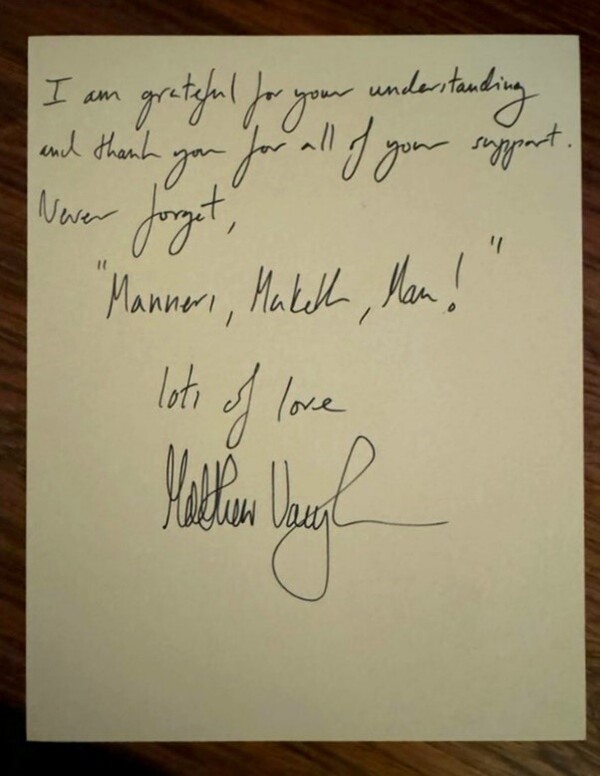 I am grateful for your understanding
and thank you for all of your support.
Never forget,
"Manners, Maketh, Man!"
lots of love
Matthew Vaughn